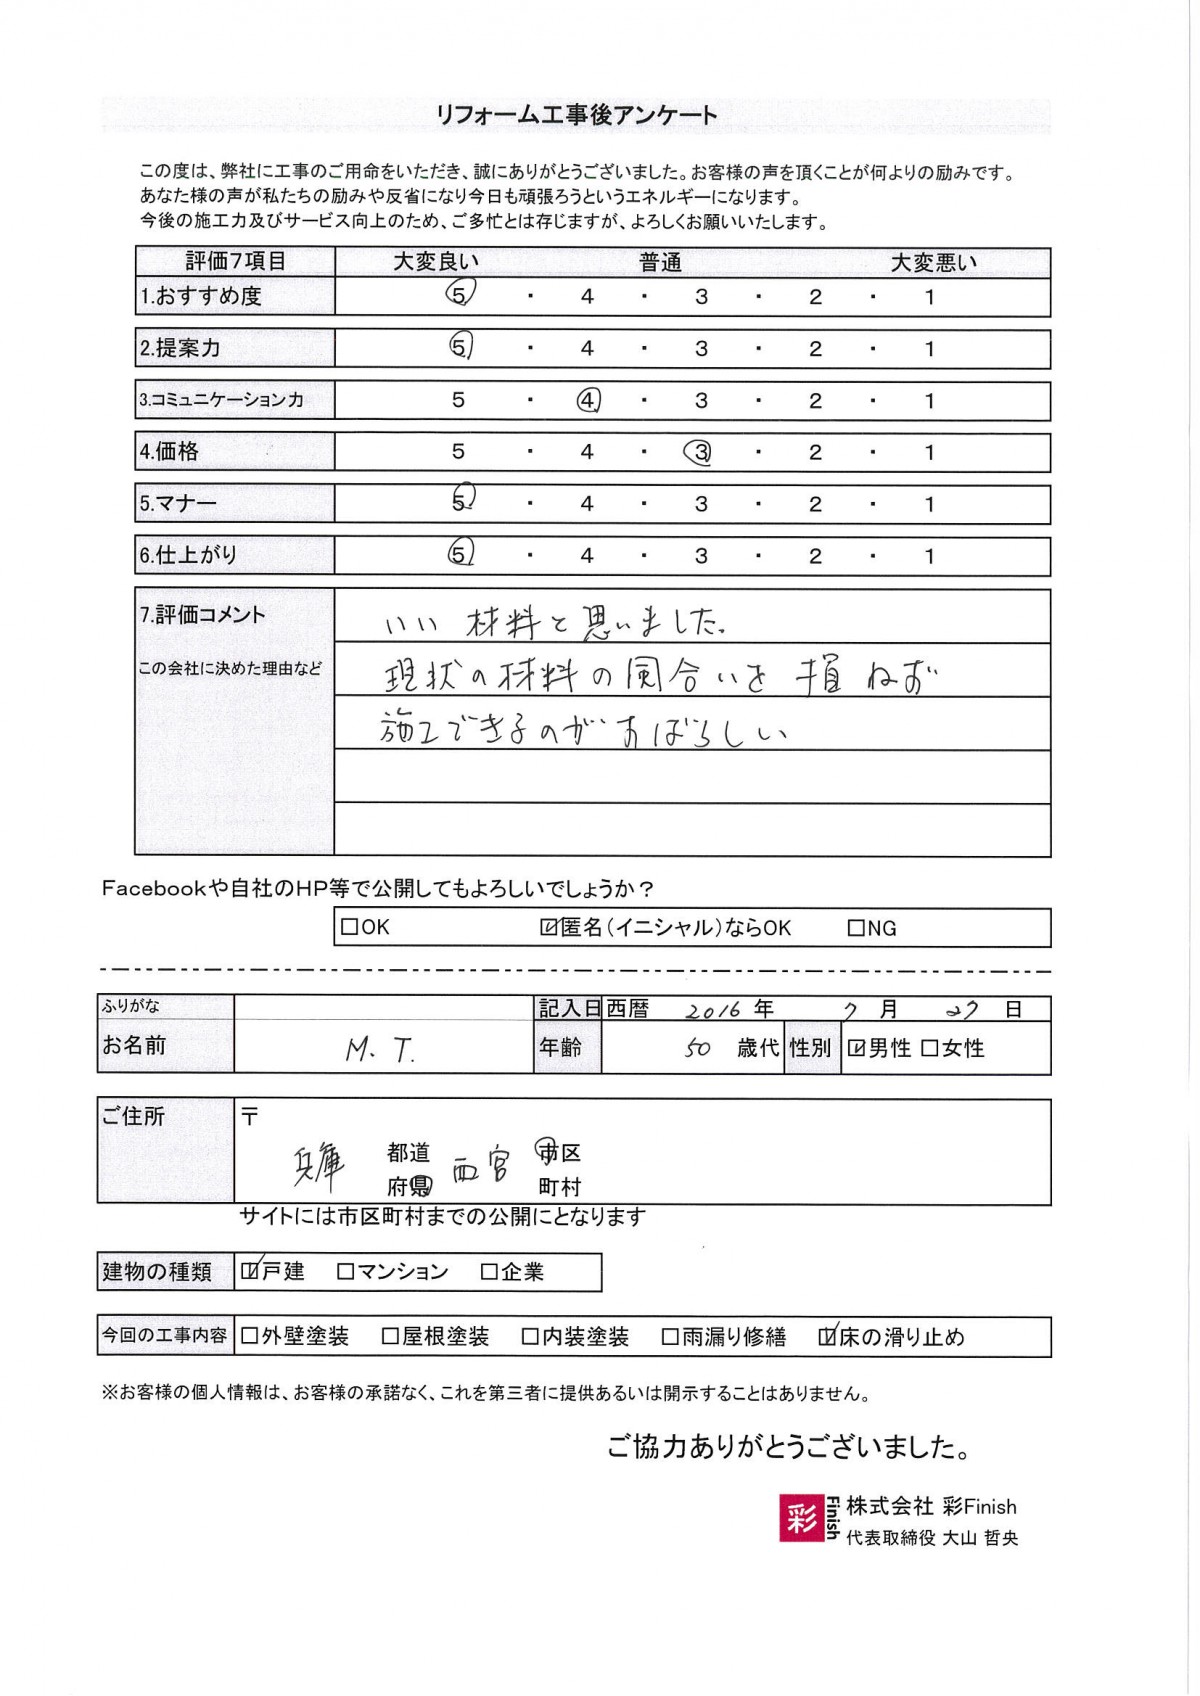 リフォーム工事後アンケート
この度は、弊社に工事のご用命をいただき、誠にありがとうございました。お客様の声を頂くことが何よりの励みです。
あなた様の声が私たちの励みや反省になり今日も頑張ろうというエネルギーになります。
今後の施工力及びサービス向上のため、ご多忙とは存じますが、よろしくお願いいたします。
評価7項目 大変良い 普通 大変悪い
1.おすすめ度 5 ・ 4 ・ 3 ・ 2 ・ 1
2.提案力 5 ・ 4 ・ 3 ・ 2 ・ 1
3.コミュニケーション力 5 ・ 4 ・ 3 ・ 2 ・ 1
4.価格 5 ・ 4 ・ 3 ・ 2 ・ 1
5.マナー 5 ・ 4 ・ 3 ・ 2 ・ 1
6.仕上がり 5 ・ 4 ・ 3 ・ 2 ・ 1
7.評価コメント いい材料と思いました。
この会社に決めた理由など 現状の材料の風合いを損ねず
施工できるのがすばらしい
Facebookや自社のHP等で公開してもよろしいでしょうか?
□OK ☑匿名(イニシャル)ならOK □NG
ふりがな 記入日 西暦 2016 年 7 月 27 日
お名前 M. T. 年齢 50 歳代 性別 ☑男性 □女性
ご住所 〒
兵庫 都道 西宮 市区
府県 町村
サイトには市区町村までの公開にとなります
建物の種類 ☑戸建 □マンション □企業
今回の工事内容 □外壁塗装 □屋根塗装 □内装塗装 □雨漏り修繕 ☑床の滑り止め
※お客様の個人情報は、お客様の承諾なく、これを第三者に提供あるいは開示することはありません。
ご協力ありがとうございました。
彩 Finish 株式会社 彩Finish
代表取締役 大山 哲央